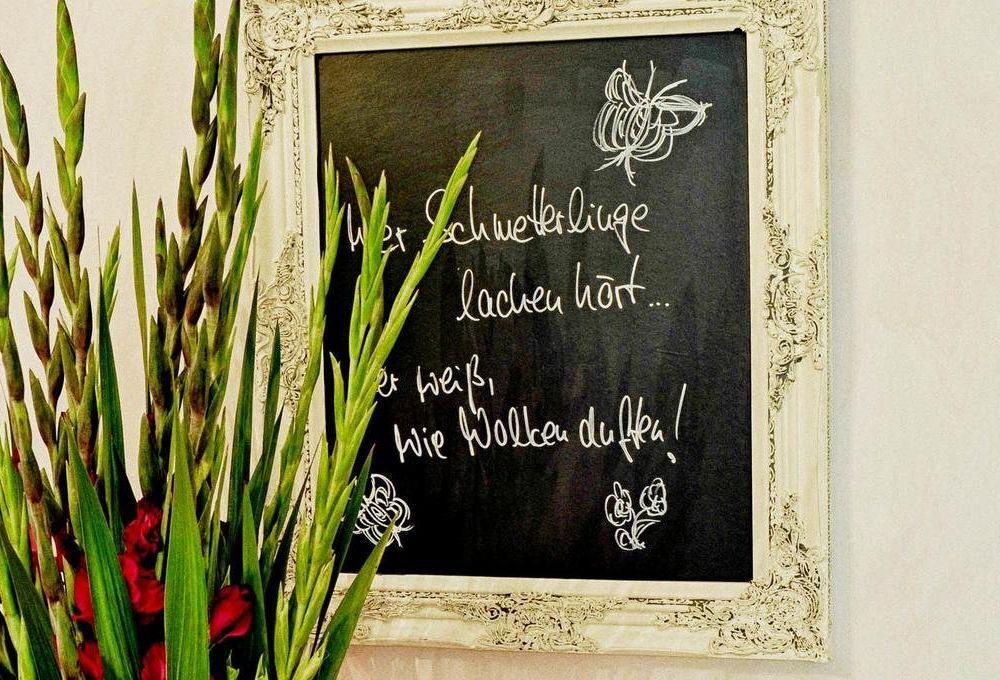 Wer Schmetterlinge
lachen hört...
er weiß,
wie Wolken duften!